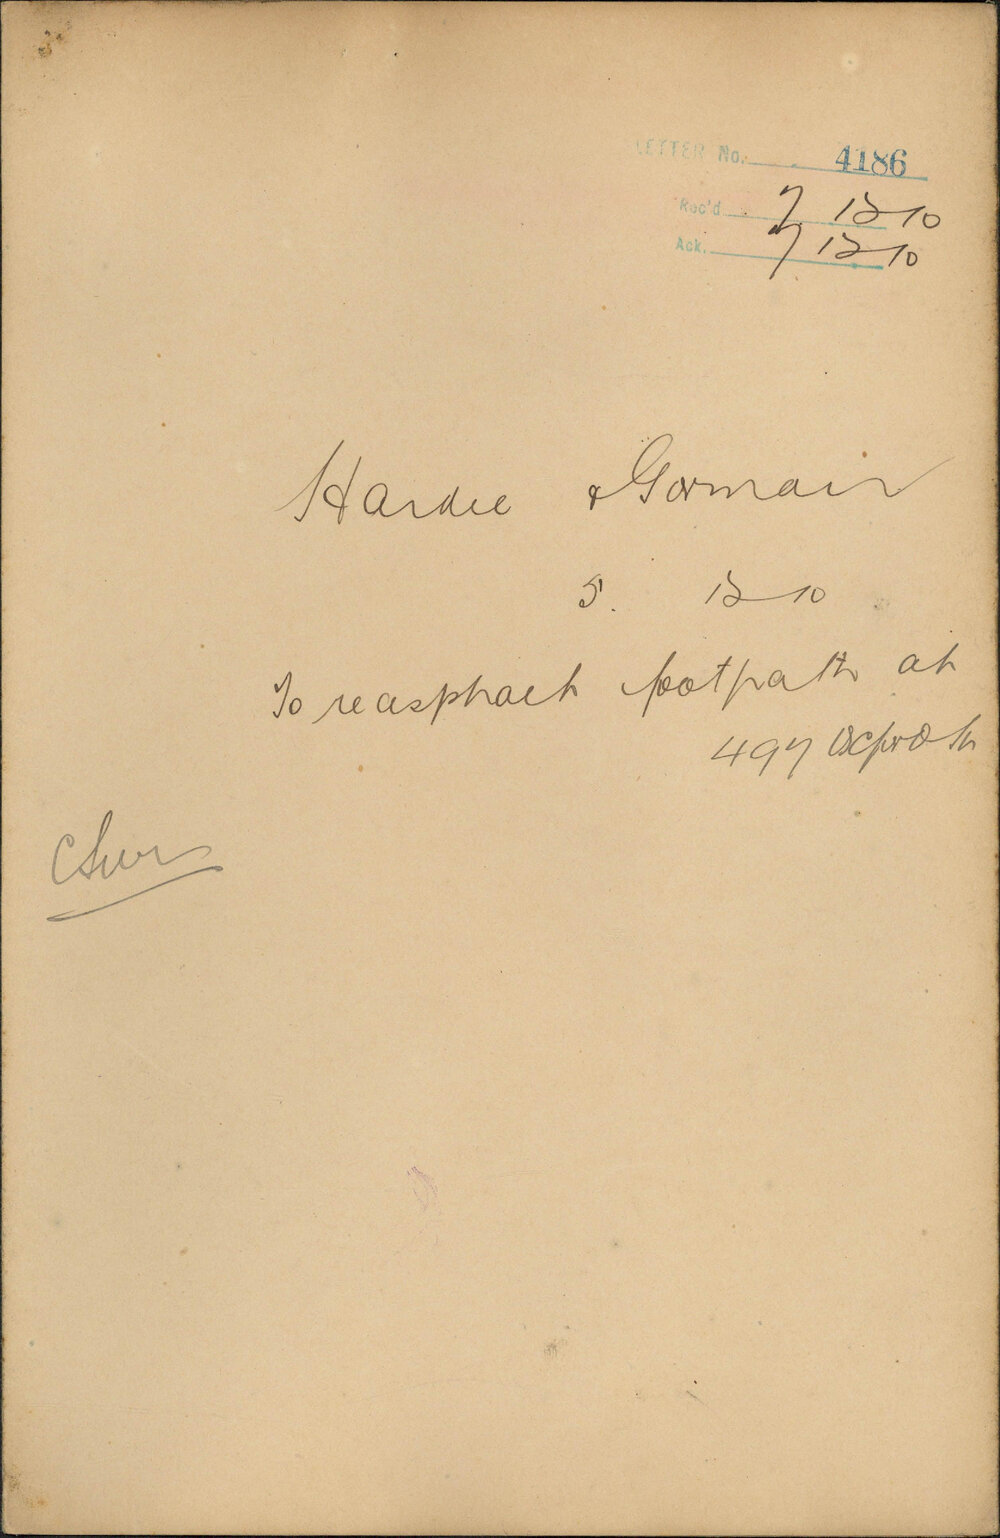 LETTER No. 4186
Rec'd 7 12 10
Ack. 7 12 10
Hardie & Gorman
5. 12 10
To reasphalt footpath at
497 Oxford St
C Sur